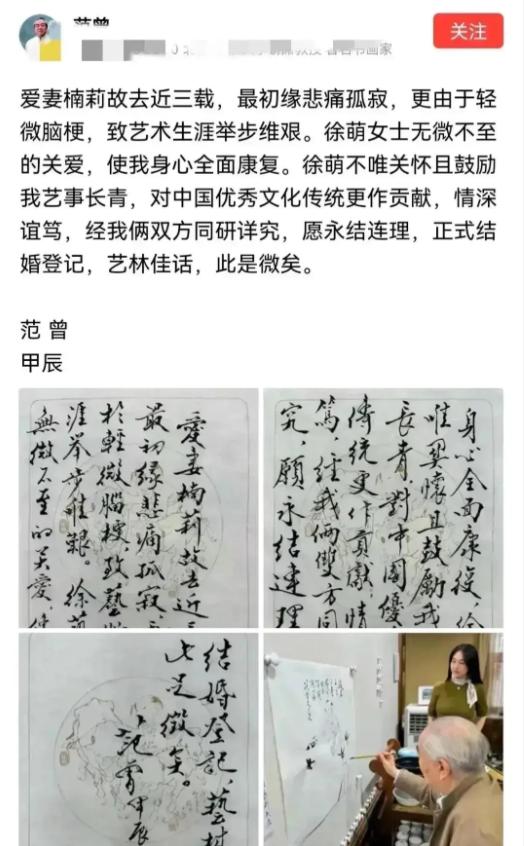 范曾
著名书画家
关注
爱妻楠莉故去近三载，最初缘悲痛孤寂，更由于轻
微脑梗，致艺术生涯举步维艰。徐萌女士无微不至
的关爱，使我身心全面康复。徐萌不唯关怀且鼓励
我艺事长青，对中国优秀文化传统更作贡献，情深
谊笃，经我俩双方同研详究，愿永结连理，正式结
婚登记，艺林佳话，此是微矣。
范 曾
甲辰
愛妻楠莉故去近三
最初缘悲痛孤寂
於輕微腦梗，致藝
涯举步维艱。徐萌
無微不至的关爱，使
身心全面康復，徐
唯關懷且鼓勵我
長青，對中國優
傳統更作貢獻，情
篤，经我俩雙方同
究，願永结連理
结婚登记，藝林
此足微矣。
范曾甲辰